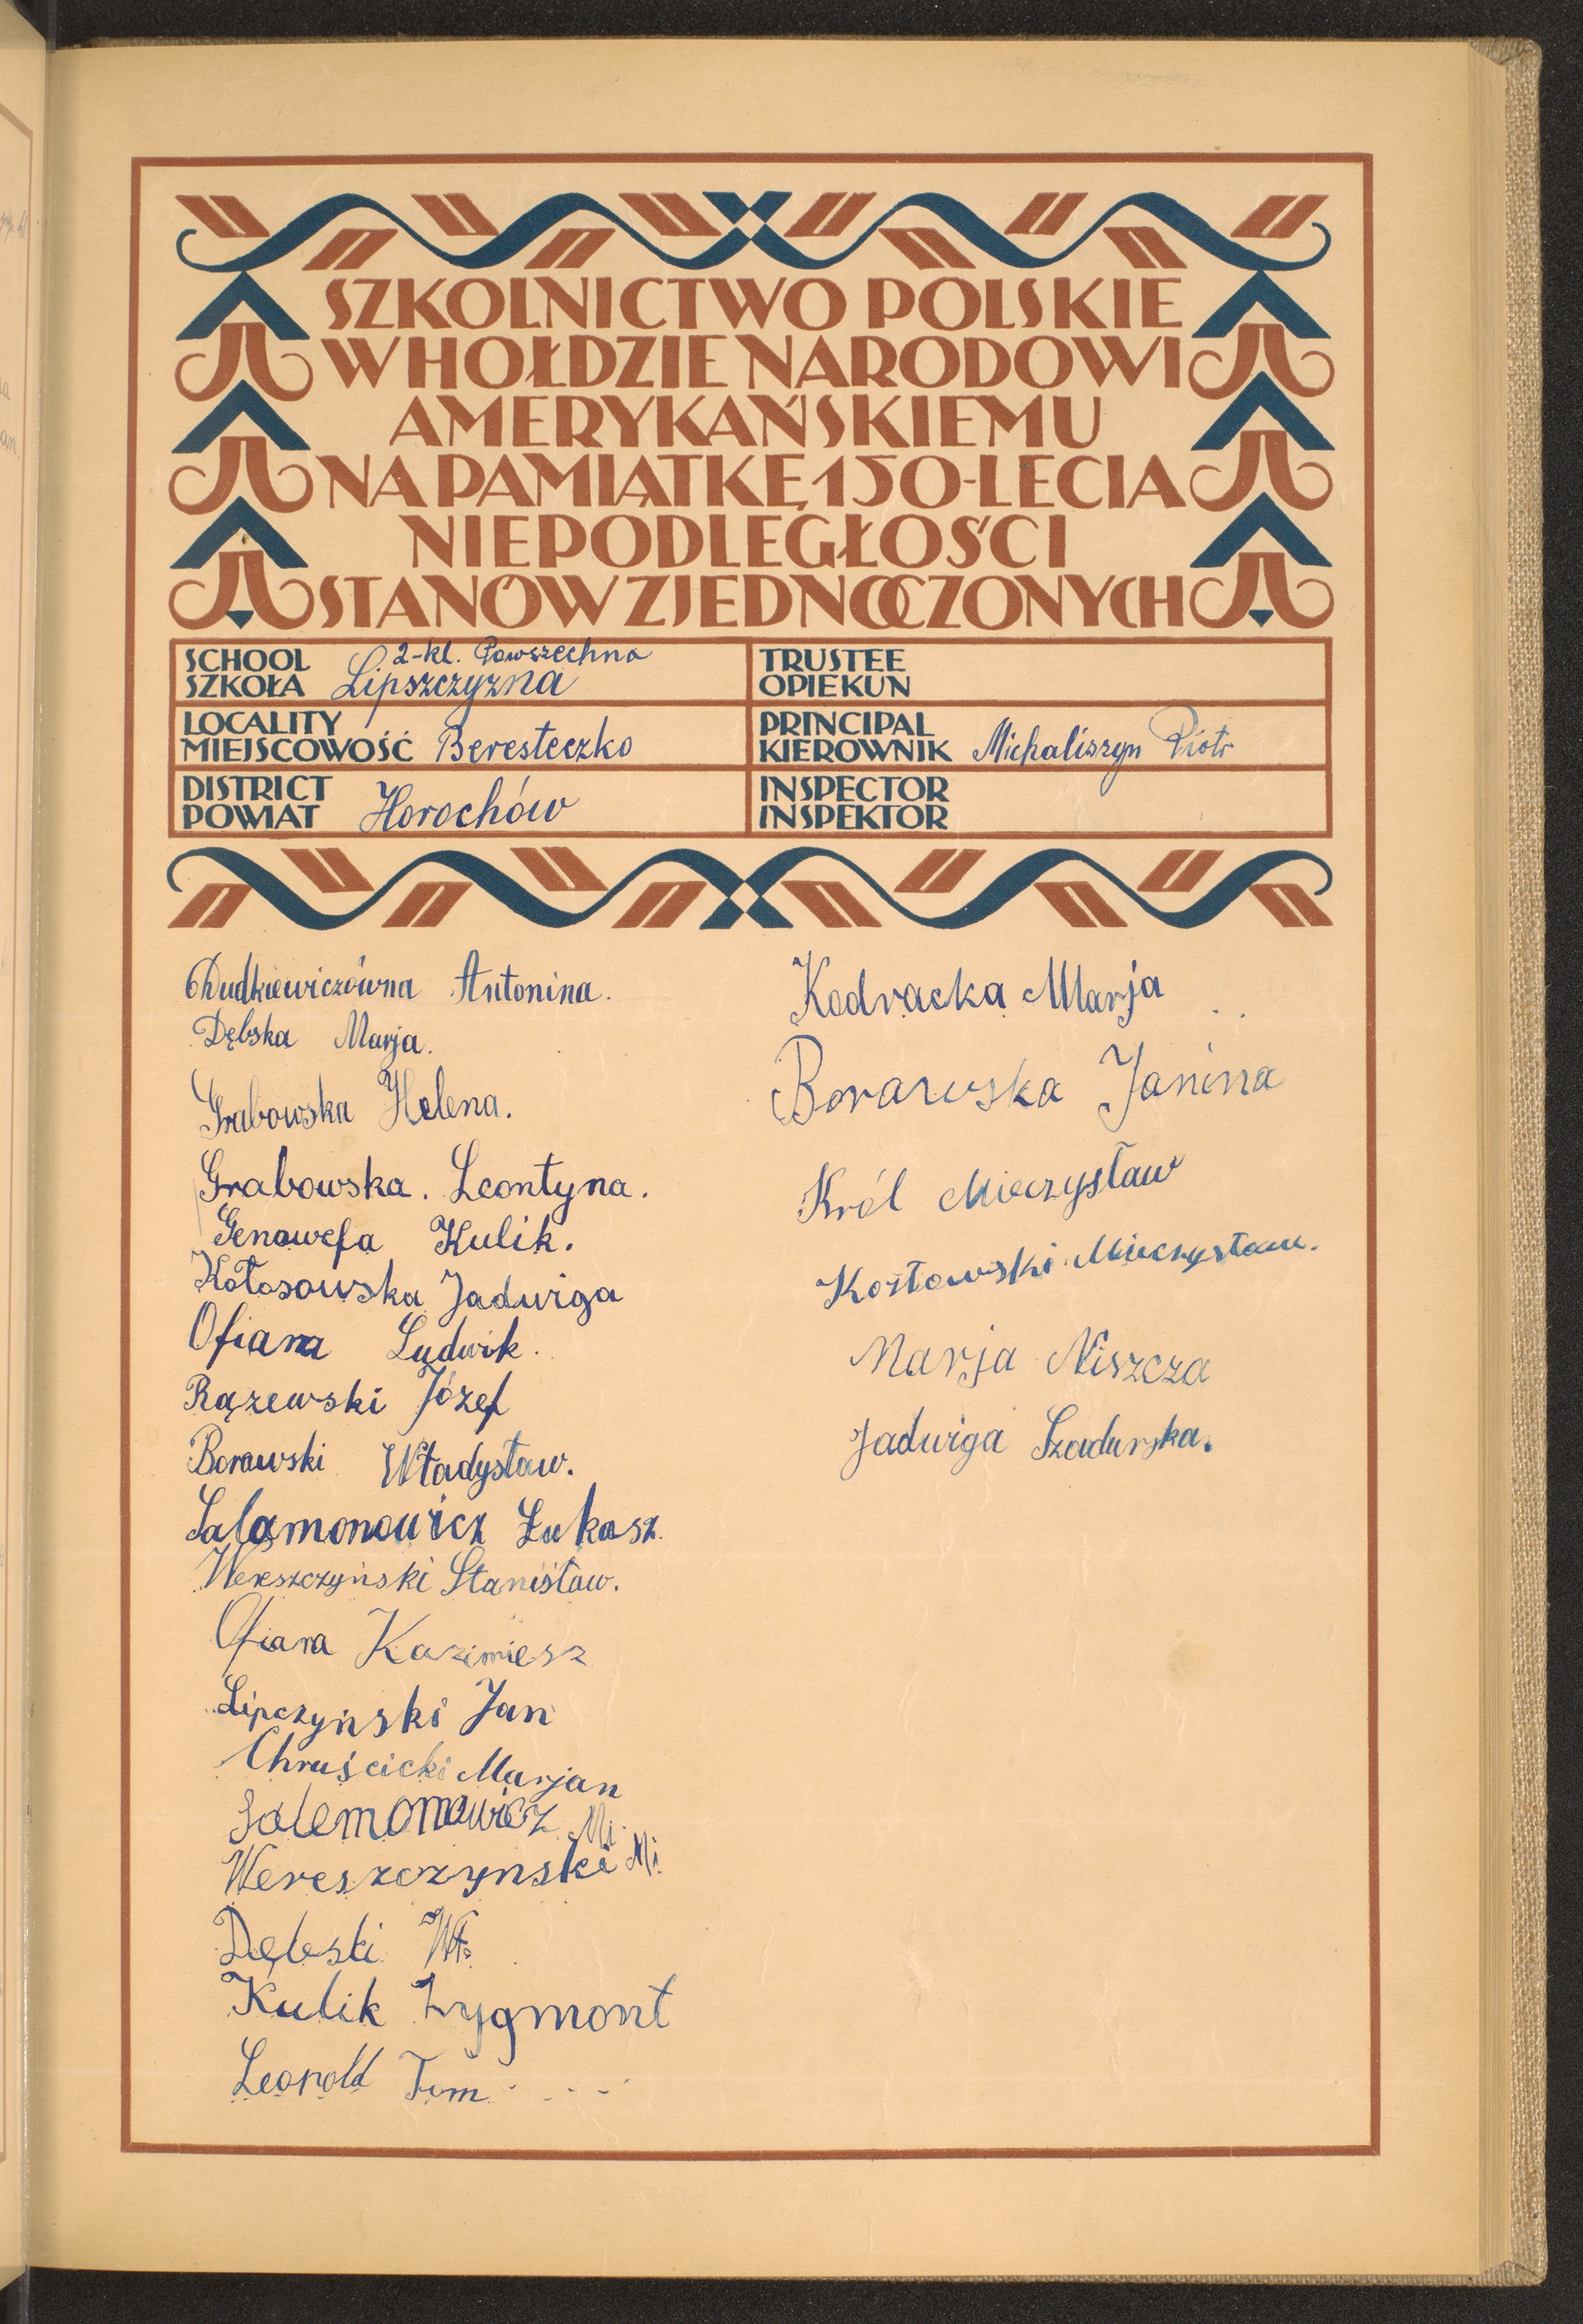 SZKOLNICTWO POLSKIE
W HOŁDZIE NARODOWI
AMERYKAŃSKIEMU
NA PAMIĄTKĘ 150-LECIA
NIEPODLEGŁOŚCI
STANÓW ZJEDNOCZONYCH
SCHOOL
SZKOŁA
2-kl. Powszechna
Lipszczyzna
TRUSTEE
OPIEKUN
LOCALITY
MIEJSCOWOŚĆ Beresteczko
PRINCIPAL
KIEROWNIK Michaliszyn Piotr
DISTRICT
POWIAT Horochów
INSPECTOR
INSPEKTOR
Dudkiewiczówna Antonina.
Dębska Marja.
Grabowska Helena.
Grabowska. Leontyna.
Genowefa Kulik.
Kołosowska Jadwiga
Ofiara Ludwik.
Rązewski Józef
Borawski Władysław.
Salamonowicz Łukasz.
Wereszczyński Stanisław.
Ofiara Kazimiesz
Lipczyński Jan
Chruścicki Marjan
Salemonowicz Mi.
Wereszczynski Mi.
Dębski Wł.
Kulik Zygmont
Leopold Tom
Kodracka Marja
Borawska Janina
Król Mieczysław
Kozłowski Mieczysław.
Marja Niszcza
Jadwiga Szadurska.